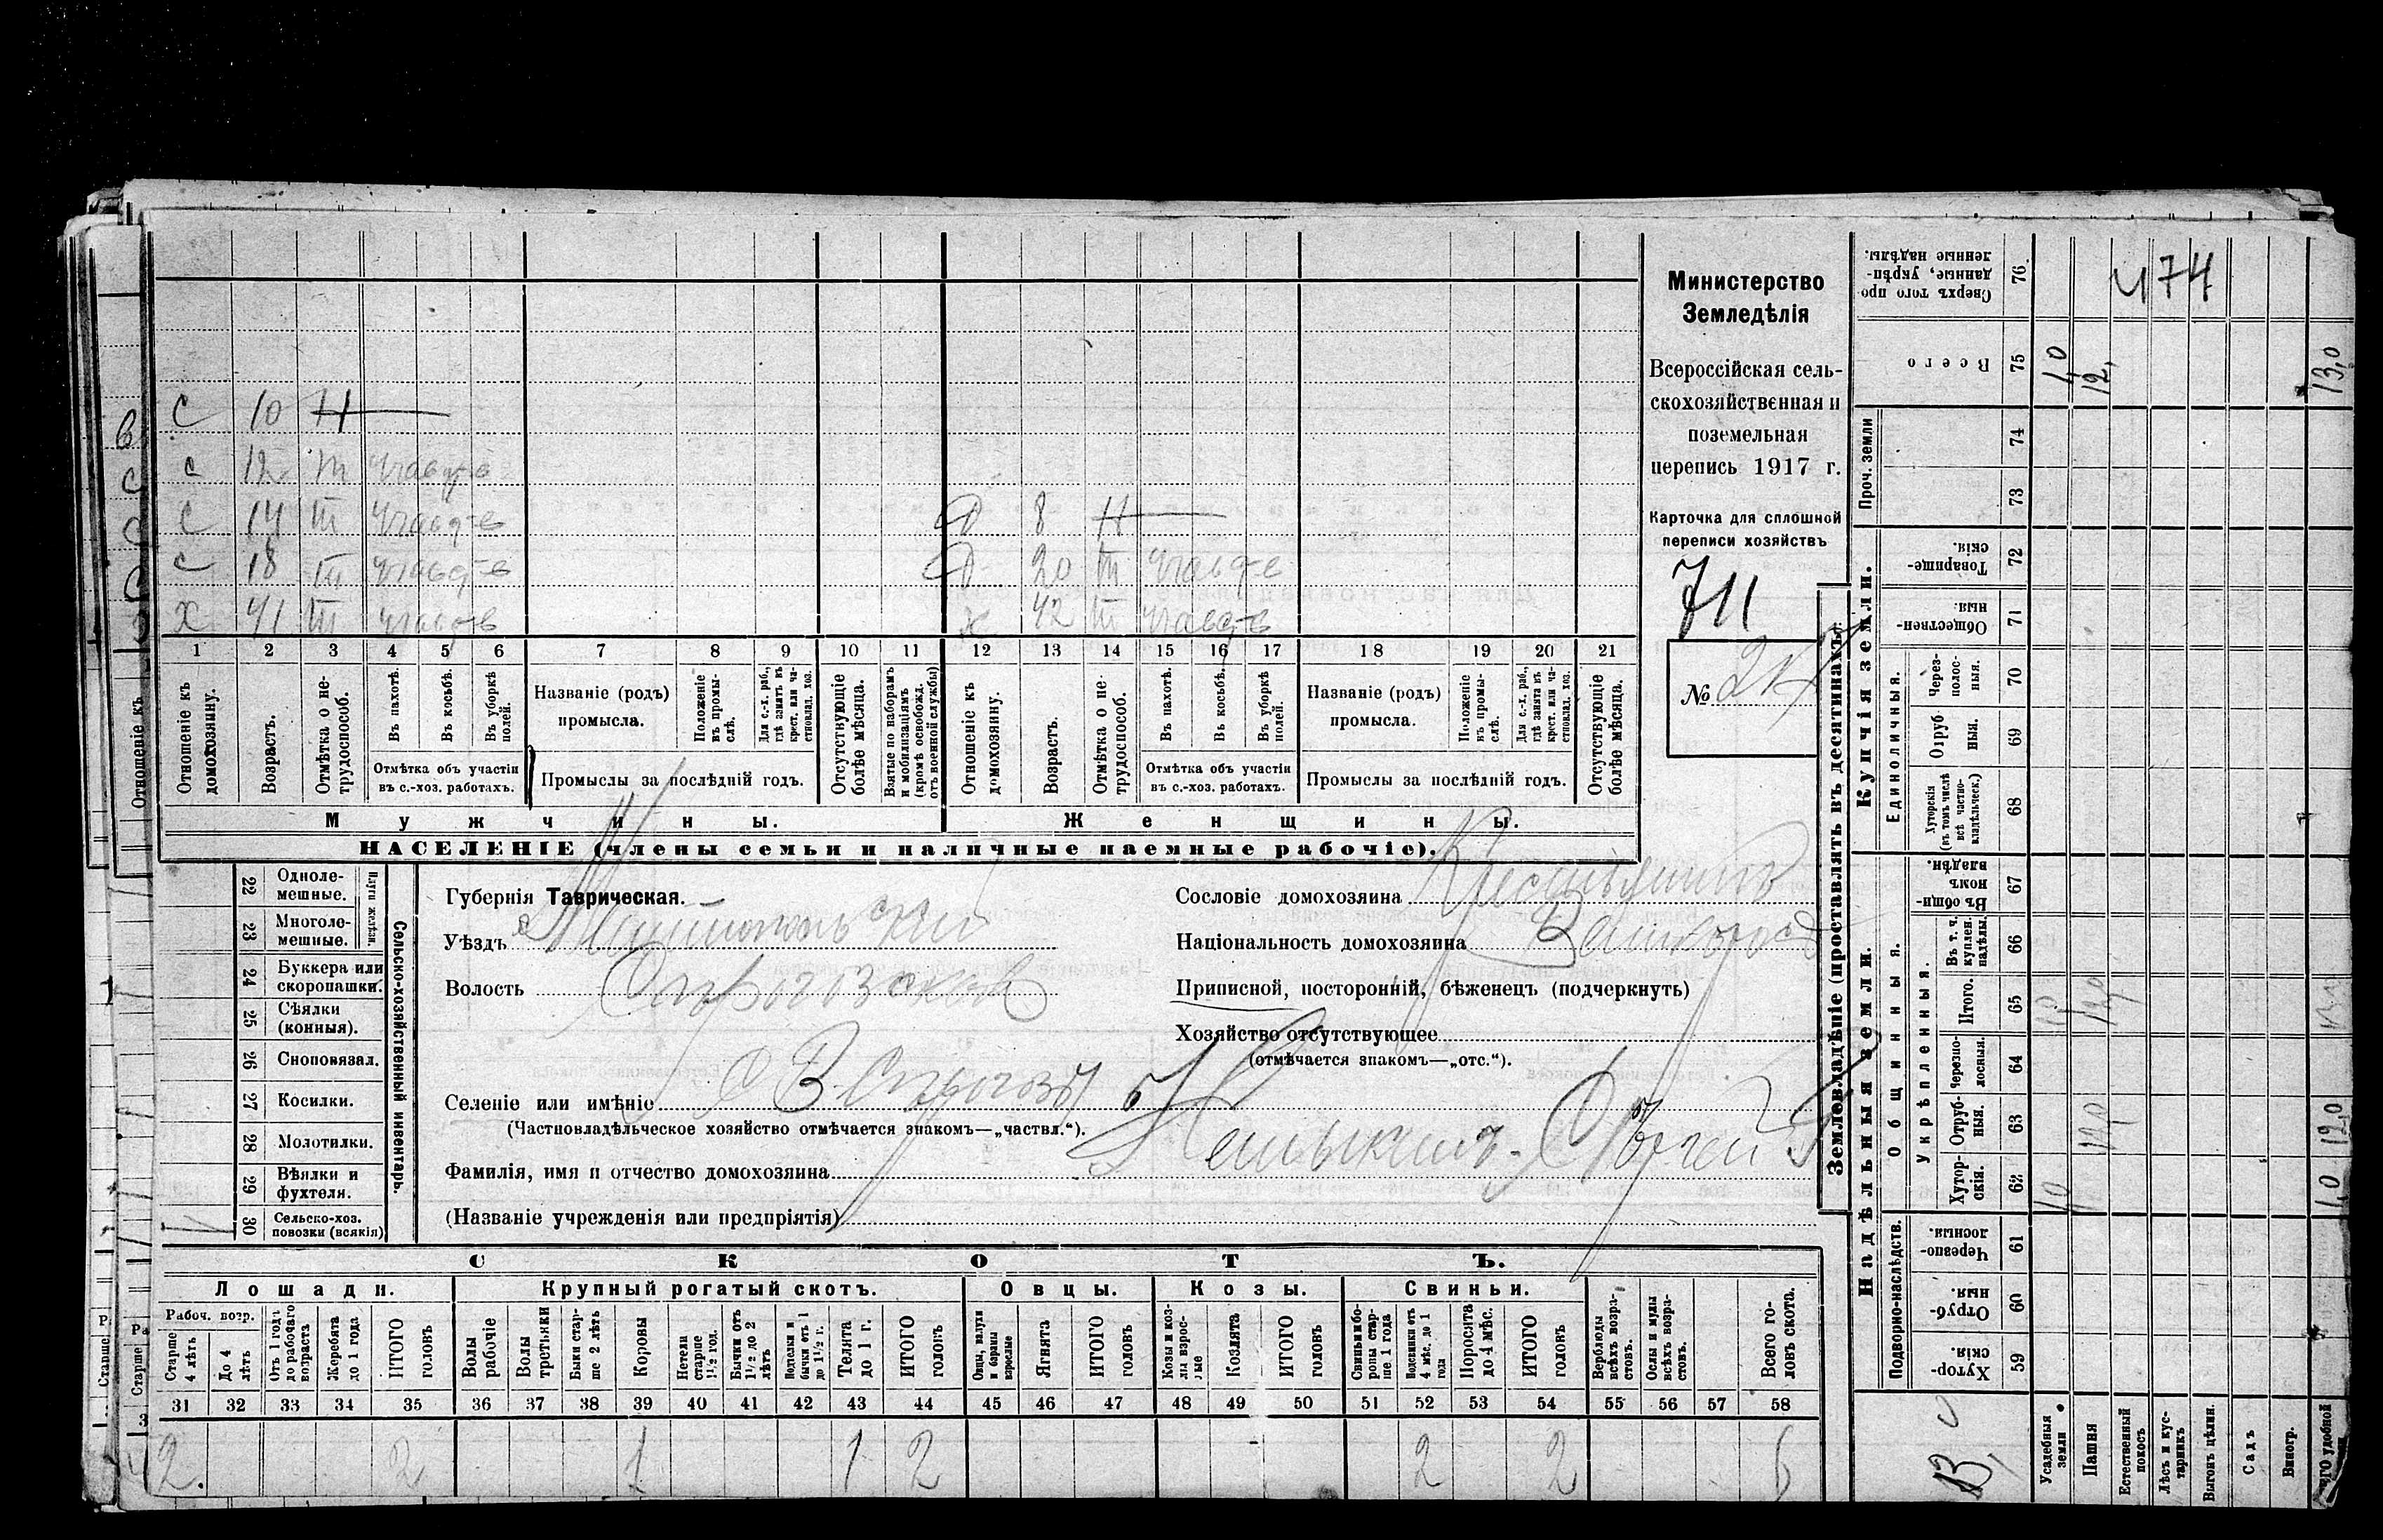 С 10 Н
с 12 т участ-в
с 14 т участ-в
Д 8 Н
с 18 т участ-в
Д 20 т участ-в
х 41 т участ-в
х 42 т участ-в
1 2 3 4 5 6 7 8 9 10 11 12 13 14 15 16 17 18 19 20 21
Отношеніе къ домохозяину.
Возрастъ.
Отмѣтка о не-трудоспособ.
Въ пахотѣ.
Въ косьбѣ.
Въ уборкѣ полей.
Отмѣтка объ участіи
въ с.-хоз. работахъ.
Названіе (родъ)
промысла.
Положеніе въ промы-слѣ.
Для с.-х. раб., гдѣ занятъ въ крест. или ча-стновлад. хоз.
Промыслы за послѣдній годъ.
Отсутствующіе болѣе мѣсяца.
Взятые по наборамъ и мобилизаціямъ (кромѣ освобожд. отъ военной службы)
Отношеніе къ домохозяину.
Возрастъ.
Отмѣтка о не-трудоспособ.
Въ пахотѣ.
Въ косьбѣ.
Въ уборкѣ полей.
Отмѣтка объ участіи
въ с.-хоз. работахъ.
Названіе (родъ)
промысла.
Положеніе въ промы-слѣ.
Для с.-х. раб., гдѣ занята въ крест. или ча-стновлад. хоз.
Промыслы за послѣдній годъ.
Отсутствующіе болѣе мѣсяца.
Мужчины.
Женщины.
НАСЕЛЕНІЕ (члены семьи и наличные наемные рабочіе).
Министерство
Земледѣлія
Всероссійская сель-
скохозяйственная и
поземельная
перепись 1917 г.
Карточка для сплошной
переписи хозяйствъ
711
№
Сельско-хозяйственный инвентарь.
Плуги желѣзн.
22 Одноле-мешные.
23 Многоле-мешные.
24 Буккера или скоропашки.
25 Сѣялки (конныя).
26 Сноповязал.
27 Косилки.
28 Молотилки.
29 Вѣялки и фухтеля.
30 Сельско-хоз. повозки (всякія) 1
Губернія Таврическая.
Уѣздъ Мелитопольскій
Волость Строгозская
Селеніе или имѣніе с В Строгозы
(Частновладѣльческое хозяйство отмѣчается знакомъ—„частвл.“).
Фамилія, имя и отчество домохозяина
(Названіе учрежденія или предпріятія)
Сословіе домохозяина Крестьянинъ
Національность домохозяина Великоросъ
Приписной, посторонній, бѣженецъ (подчеркнуть)
Хозяйство отсутствующее
(отмѣчается знакомъ—„отс.“).
СКОТЪ.
Лошади. Крупный рогатый скотъ. Овцы. Козы. Свиньи.
Рабоч. возр.
Старше 4 лѣтъ
До 4 лѣтъ
Отъ 1 года до рабочаго возраста
Жеребята до 1 года
ИТОГО головъ
Волы рабочіе
Волы третьяки
Быки стар-ше 2 лѣтъ
Коровы
Нетели старше 1½ год.
Бычки отъ 1½ до 2 лѣтъ
Телята до 1 г.
ИТОГО головъ
Ягнята
ИТОГО головъ
Козлята
ИТОГО головъ
Поросята до 4 мѣс.
ИТОГО головъ
Верблюды всѣхъ возра-стовъ.
Ослы и мулы всѣхъ возра-стовъ.
Всего го-ловъ скота.
31 32 33 34 35 36 37 38 39 40 41 42 43 44 45 46 47 48 49 50 51 52 53 54 55 56 57 58
2. 2 1 1 2 2 2 6
Землевладѣніе (проставлять въ десятинахъ).
474
Сверхъ того про-данные, укрѣп-ленные надѣлы. 76
Всего 75 1,0 12, 13,0
Проч. земли 74 73
Купчія земли.
Товарище-скія. 72
Обществен-ныя. 71
Единоличныя.
Через-полос-ныя. 70
Отруб-ныя. 69
Хуторскія (въ томъ числѣ всѣ частно-владѣльческ.) 68
Надѣльныя земли.
Общинныя.
Въ общи-нномъ владѣн. 67
Укрѣпленныя.
Въ т. ч. куплен. надѣлы. 66
Итого. 65
Черезпо-лосныя. 64
Отруб-ныя. 63 12,0 12,0
Хутор-скія. 62 1,0 1,0
Подворно-наслѣдств.
Черезпо-лосныя. 61
Отруб-ныя. 60
Хутор-скія. 59
Усадебныя земли
Пашня
Естественный покосъ
Лѣсъ и кус-тарникъ
Выгонъ цѣлин.
Садъ
Виногр.